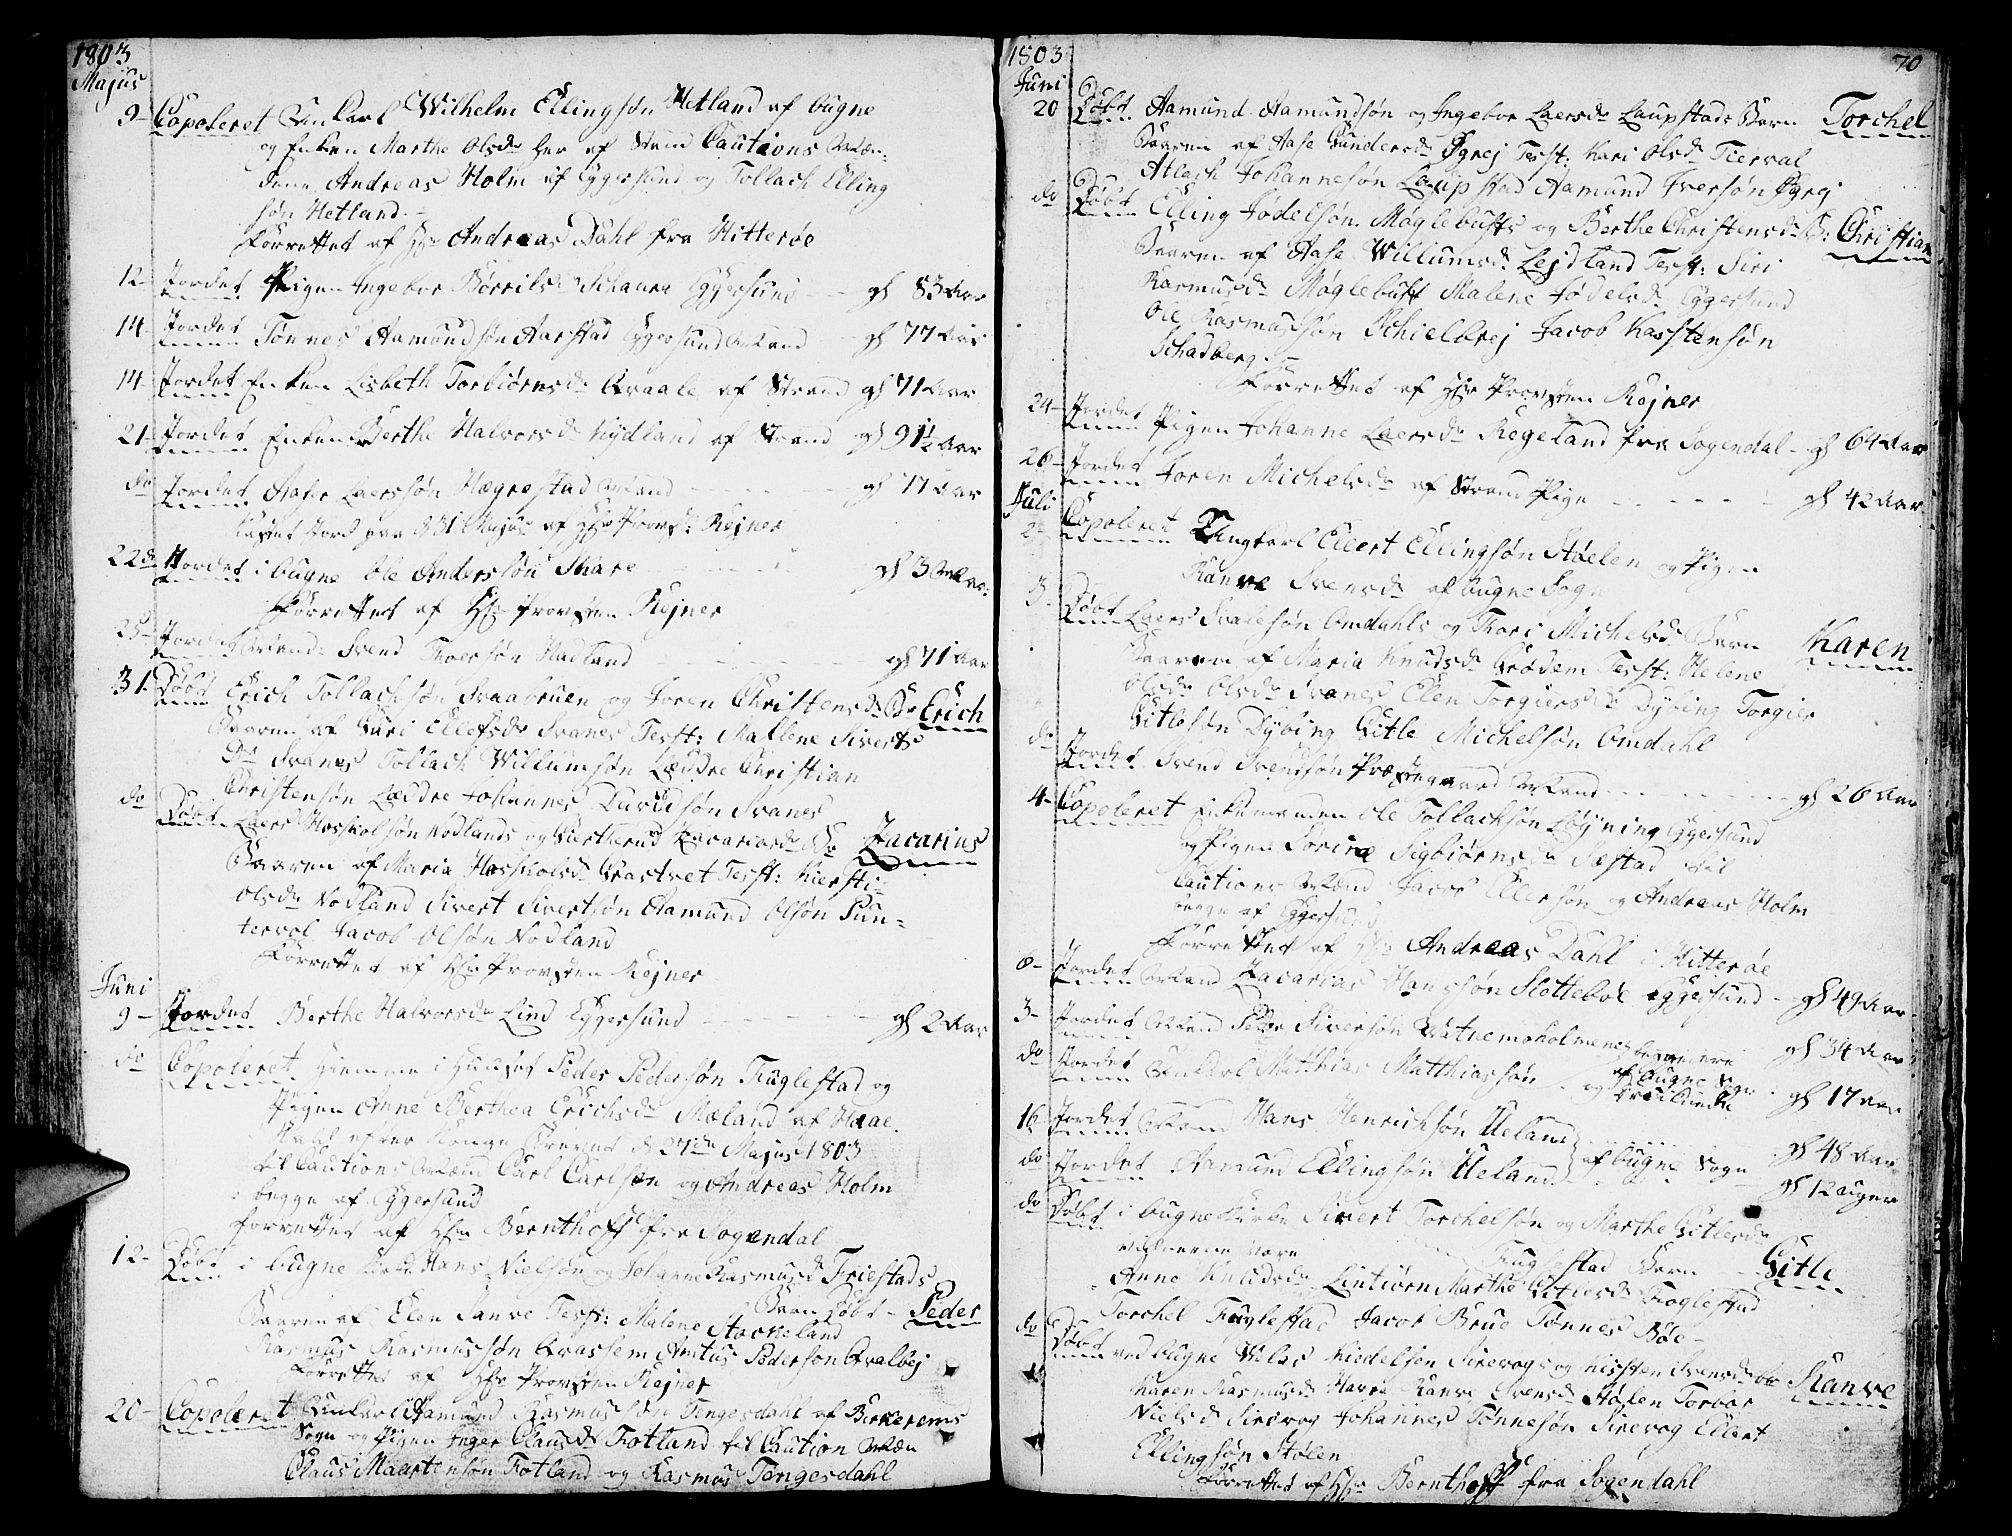 1803
Majus
9- Copoleret Unkarl Wilhelm Ellingsøn Hetland af Ougne
og Enken Marthe Olsdr her af Strand Cautions Mæn-
dene Andreas Holm af Eggersund og Tollach Elling
søn Hetland.-
Forrettet af Hr Andreas Dahl fra Hitterøe
12- Jordet Pigen Ingebor Børrilsdr Schaara Eggersund gl 83 Aar
14- Jordet Tønnes Aamundsøn Aarstad Eggersund Mand gl 77 Aar
14- Jordet Enken Lisbeth Torbiørnsdr Qvaale af Strand gl 71 Aar
21- Jordet Enken Berthe Halvorsdr Nydland af Strand gl 91½ Aar
do Jordet Laersøn Hægrestad Mand gl 77 Aar
kastet Jord paa d 31 Majus af Hr Provst: Rejner
22de Jordet i Ougne Ole Anderssøn Skare gl 3
Forrettet af Hr Provsten Rejner
25- Jordet Mand: Svend Troersøn Hadland gl 71 Aar
31. Døbt Erich Tollachsøn Svaabruen og Joren Christensdr Br Erich
Baaren af Guri Ellefsdr Svanes Test: Mallene Siverts
Dr Svanes Tollach Willumsøn Leddre Christian
Christensøn Leddre Johannes Davidsøn Svanes
do Døbt Laers Hosskolsøn Nødlands og Giertherud Zacariasdr Br Zacarius
Baaren af Maria Hosskolsdr Grastvet Test: Kiersti
Olsdr Nodland Sivert Sivertsøn Aamund Olsøn Pun-
tervol Jacob Olsøn Nodland
Forrettet af Hr Provsten Rejner
Juni
9- Jordet Berthe Halvorsdr Lind Eggersund gl 2 Aar
do Copoleret hiemme i Huuset Peder Pedersøn Fuglestad og
Pigen Anne Berthea Erichsdr Mæland af Haae
efter Konge Brevet d 27de Majus 1803
til Cautions Mænd Carl Carlsen og Andreas Holm
begge af Eggersund
forrettet af Hr Bernthoff fra Sogendal
12- Døbt i Ougne Kirke Hans Nielsøn og Johanne Rasmusdr Friestads
Barn Døbt - Peder
Baaren af Elen Sanve Test: Malene Stockeland
Rasmus Rasmussøn Grassem Amtus Pederson Qvalbej
Forrettet af Hr Provsten Rejner
20- Copoleret Unkarl Aamund Rasmussøn Tengesdahl af Birkerems
Sogn og Pigen Inger Clausdr Fotland til Caution Mæn
Claus Maartensøn Fotland og Rasmus Tengesdahl
1803 70
Juni
20 Døbt Aamund Aamundsøn og Ingebor Laersdr Laupstads Barn Torchel
Baaren af Aase Gundersdr Øgrej Test: Kari Olsdr Tierval
Atlach Johannesøn Laupstad Aamund Iversøn Øgrej
do Døbt Elling Jødelsøn Møglebusts og Berthe Christensdr B: Christian
Baaren af Aase Willumsdr Lejdland Test: Siri
Rasmusdr Møglebust Malene Jødelsdr Eggersund
Ole Rasmussøn Schielbrej Jacob Karstensøn
Schadberg.-
Forrettet af Hr Provsten Rejner
24- Jordet Pigen Johanne Laersdr Regeland fra Sogendal - gl 64 Aar
26- Jordet Joren Michelsdr af Strand Pige gl 42 Aar
Juli
2- Copoleret Ungkarl Ellert Ellingsøn Støelen og Pigen
Ranve Svensdr af Ougne Sogn
3- Døbt Laers Svalesøn Omdahls og Thori Michelsdr Barn Karen
Baaren af Maria Knudsdr Grødem Test: Helene
Olsdr Svanes Elen Torgiersdr Dybing Torgier
Gitlesøn Dybing Gitle Michelsøn Omdahl
do Jordet Svend Svendsøn Præstegaard Mand gl 26 Aar
4- Copoleret Enkemanden Ole Tollachsøn Løyning Eggersund
og Pigen Sorine Sigbiørnsdr Sæstad til
Cautions Mænd Jacob Ellersøn og Andreas Holm
begge af Eggersund
Forrettet af Hr Andreas Dahl i Hitterøe
6- Jordet Mand Zacarias Hanssøn Slettebøe Eggersund - gl 49 Aar
3- Jordet Mand Peder Siversøn Watnemoholmene gl 34 Aar
do Jordet Unkarl Matthias Matthiassøn og af Ougne Sogn gl 17 Aar
16- Jordet Mand Hans Henrichsøn Ueland gl 48 Aar
do Jordet Aamund Ellingsøn Ueland af Ougne Sogn gl 12 Uger
do Døbt i Ougne Kirke Sivert Torchelsøn og Marthe Gitlesdr
Fuglestad Barn - Gitle
Vidnerne vare
Anne Knudsdr Lintiørn Marthe Gitlesdr Foglestad
Torchel Fuglestad Jacob Brue Tønnes Bøe-
do Døbt ved Ougne Niels Michelsen Sirevogs og Kirsten Svensdr Br Ranve
Karen Rasmusdr Havre Ranve Svensdr Støelen Torbor
Nielsdr Sirevog Johannes Tønnesøn Sirevog Ellert
Ellingsøn Stølen
Forrettet af Hr Bernthoff fra Sogendahl